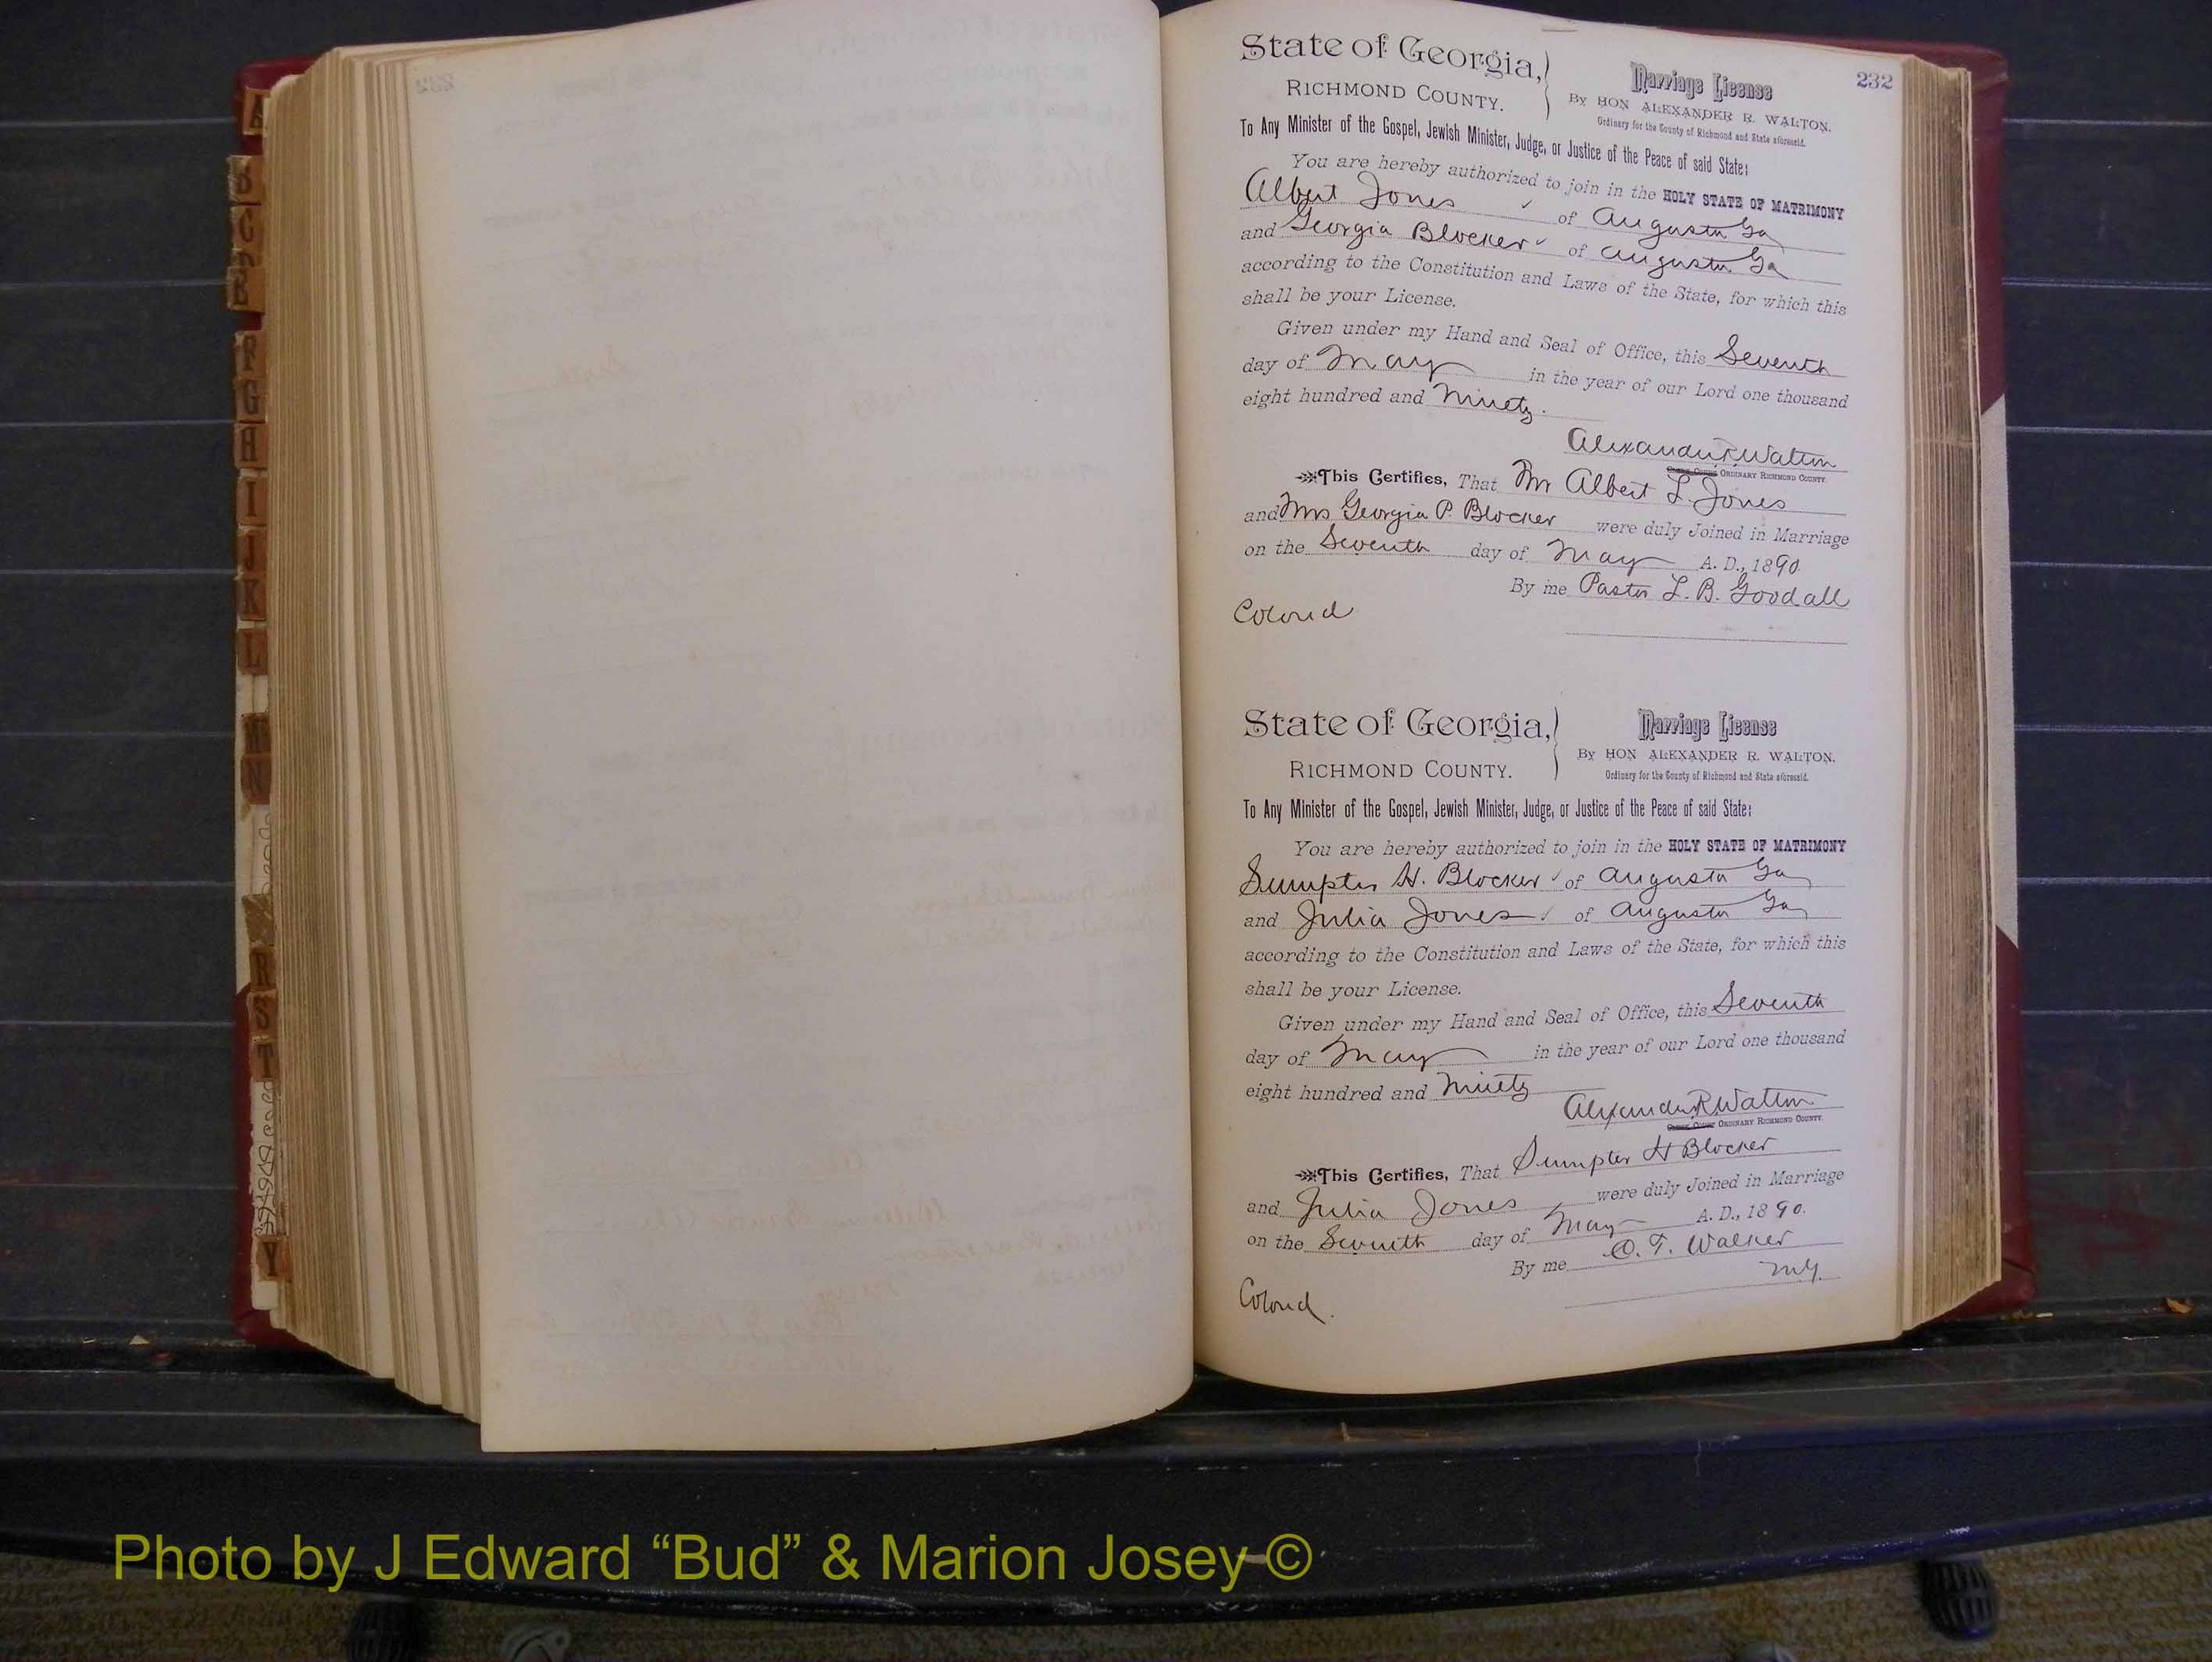 232
State of Georgia,
RICHMOND COUNTY.
Marriage License
By HON ALEXANDER R. WALTON.
Ordinary for the County of Richmond and State aforesaid.
To Any Minister of the Gospel, Jewish Minister, Judge, or Justice of the Peace of said State:
You are hereby authorized to join in the HOLY STATE OF MATRIMONY
Albert Jones of Augusta Ga
and Georgia Blocker of Augusta Ga
according to the Constitution and Laws of the State, for which this
shall be your License.
Given under my Hand and Seal of Office, this Seventh
day of May in the year of our Lord one thousand
eight hundred and Ninety.
Alexander R Walton
ORDINARY RICHMOND COUNTY.
This Certifies, That Mr Albert L. Jones
and Mrs Georgia P. Blocker were duly Joined in Marriage
on the Seventh day of May A. D., 1890.
By me Pastor L. B. Goodall
Colored
State of Georgia,
RICHMOND COUNTY.
Marriage License
By HON ALEXANDER R. WALTON.
Ordinary for the County of Richmond and State aforesaid.
To Any Minister of the Gospel, Jewish Minister, Judge, or Justice of the Peace of said State:
You are hereby authorized to join in the HOLY STATE OF MATRIMONY
Sumpter H. Blocker of Augusta Ga
and Julia Jones of Augusta Ga
according to the Constitution and Laws of the State, for which this
shall be your License.
Given under my Hand and Seal of Office, this Seventh
day of May in the year of our Lord one thousand
eight hundred and Ninety
Alexander R Walton
ORDINARY RICHMOND COUNTY.
This Certifies, That Sumpter H Blocker
and Julia Jones were duly Joined in Marriage
on the Seventh day of May A. D., 1890.
By me C. T. Walker
M.G.
Colored.
Photo by J Edward “Bud” & Marion Josey ©